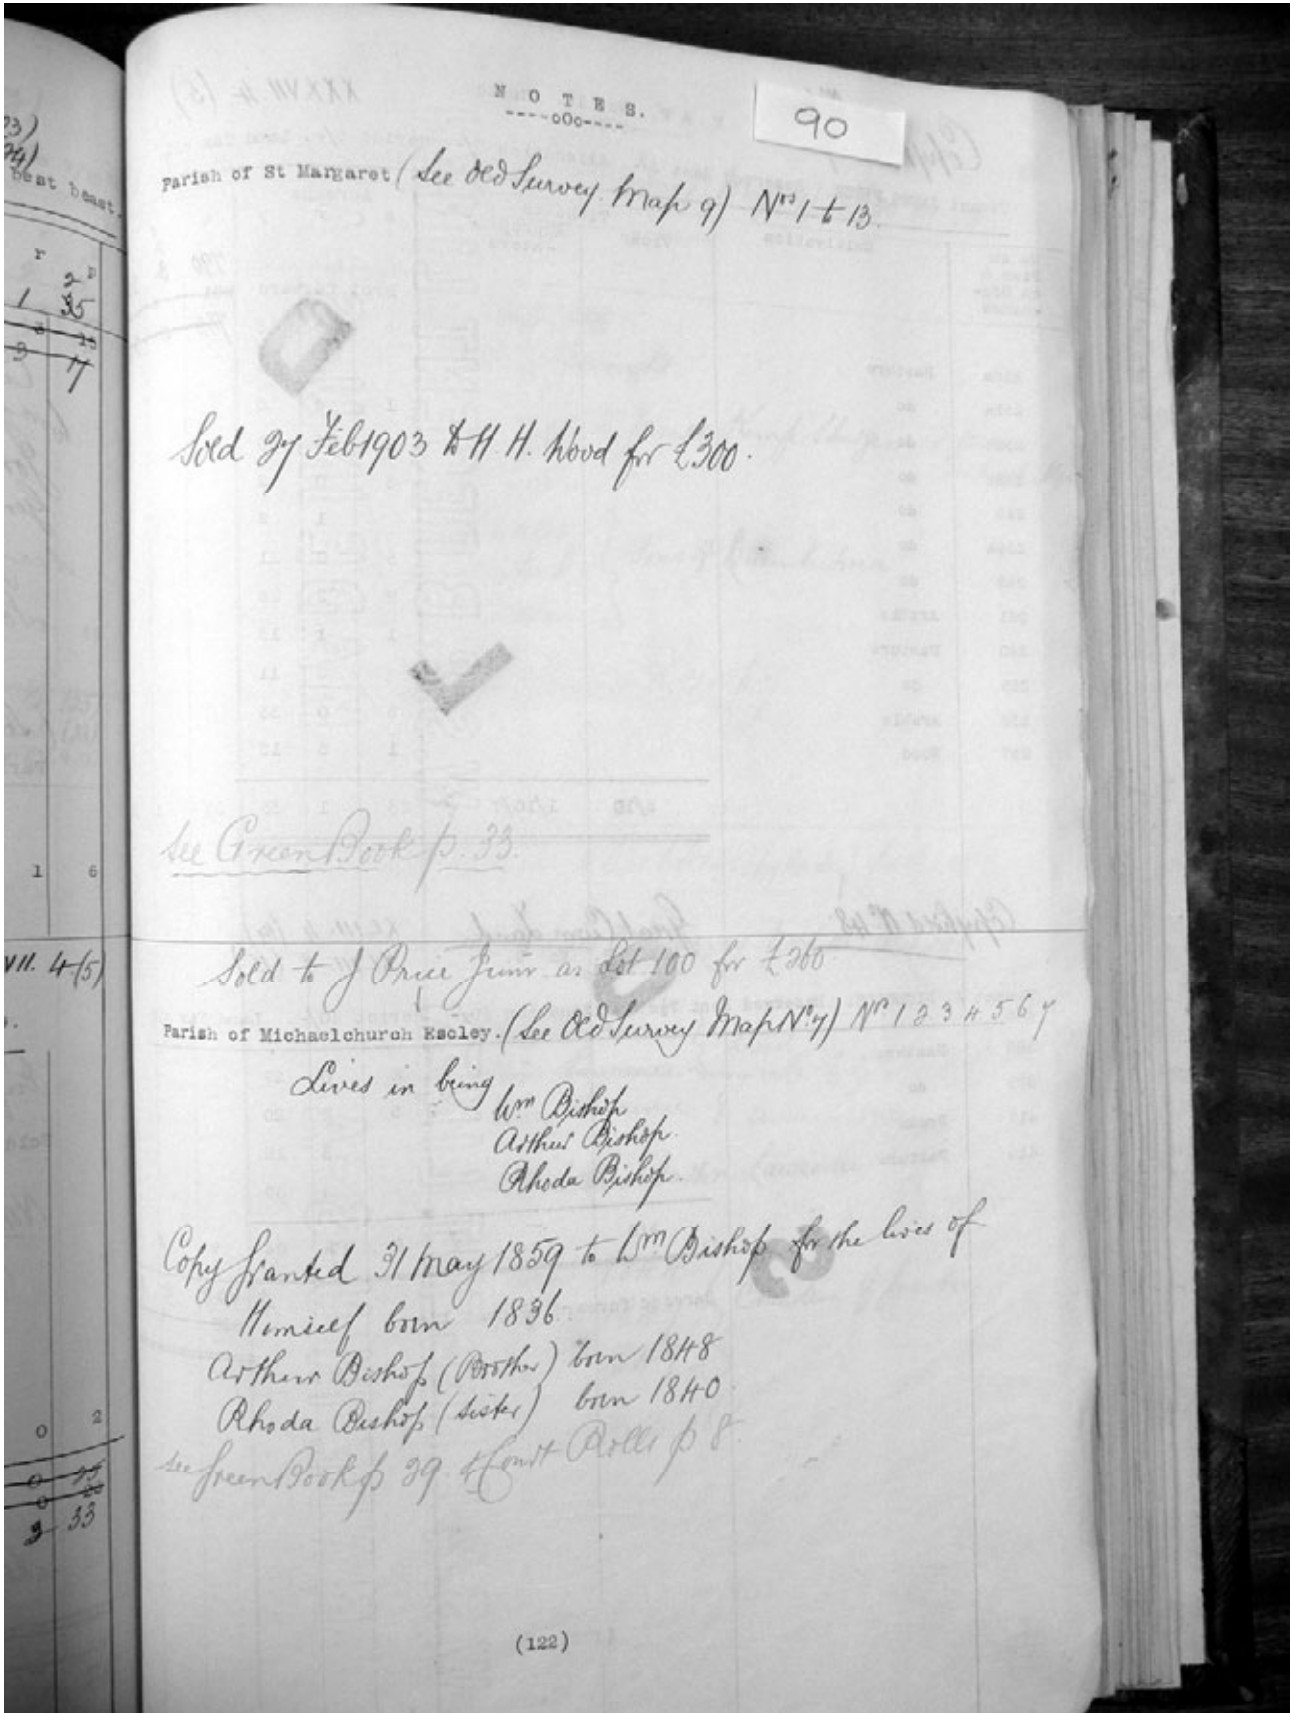 NOTES.
----oOo----
90
Parish of St Margaret (See Old Survey Map 9) Nos 1 to 13.
Sold 27 Feb 1903 to H. H. Wood for £300.
See Green Book p. 33.
Sold to J Price Junr as Lot 100 for £260
Parish of Michaelchurch Escley. (See Old Survey Map No 7) Nos 1 2 3 4 5 6 7
Lives in being
Wm Bishop
Arthur Bishop.
Rhoda Bishop.
Copy granted 31 May 1859 to Wm Bishop for the lives of
Himself born 1836.
Arthur Bishop (Brother) born 1848
Rhoda Bishop (Sister) born 1840.
see Green Book p 29. & Court Rolls p 8.
(122)
best beast.
r
1 35
3 17
1 6
VII. 4 (5)
0 2
33